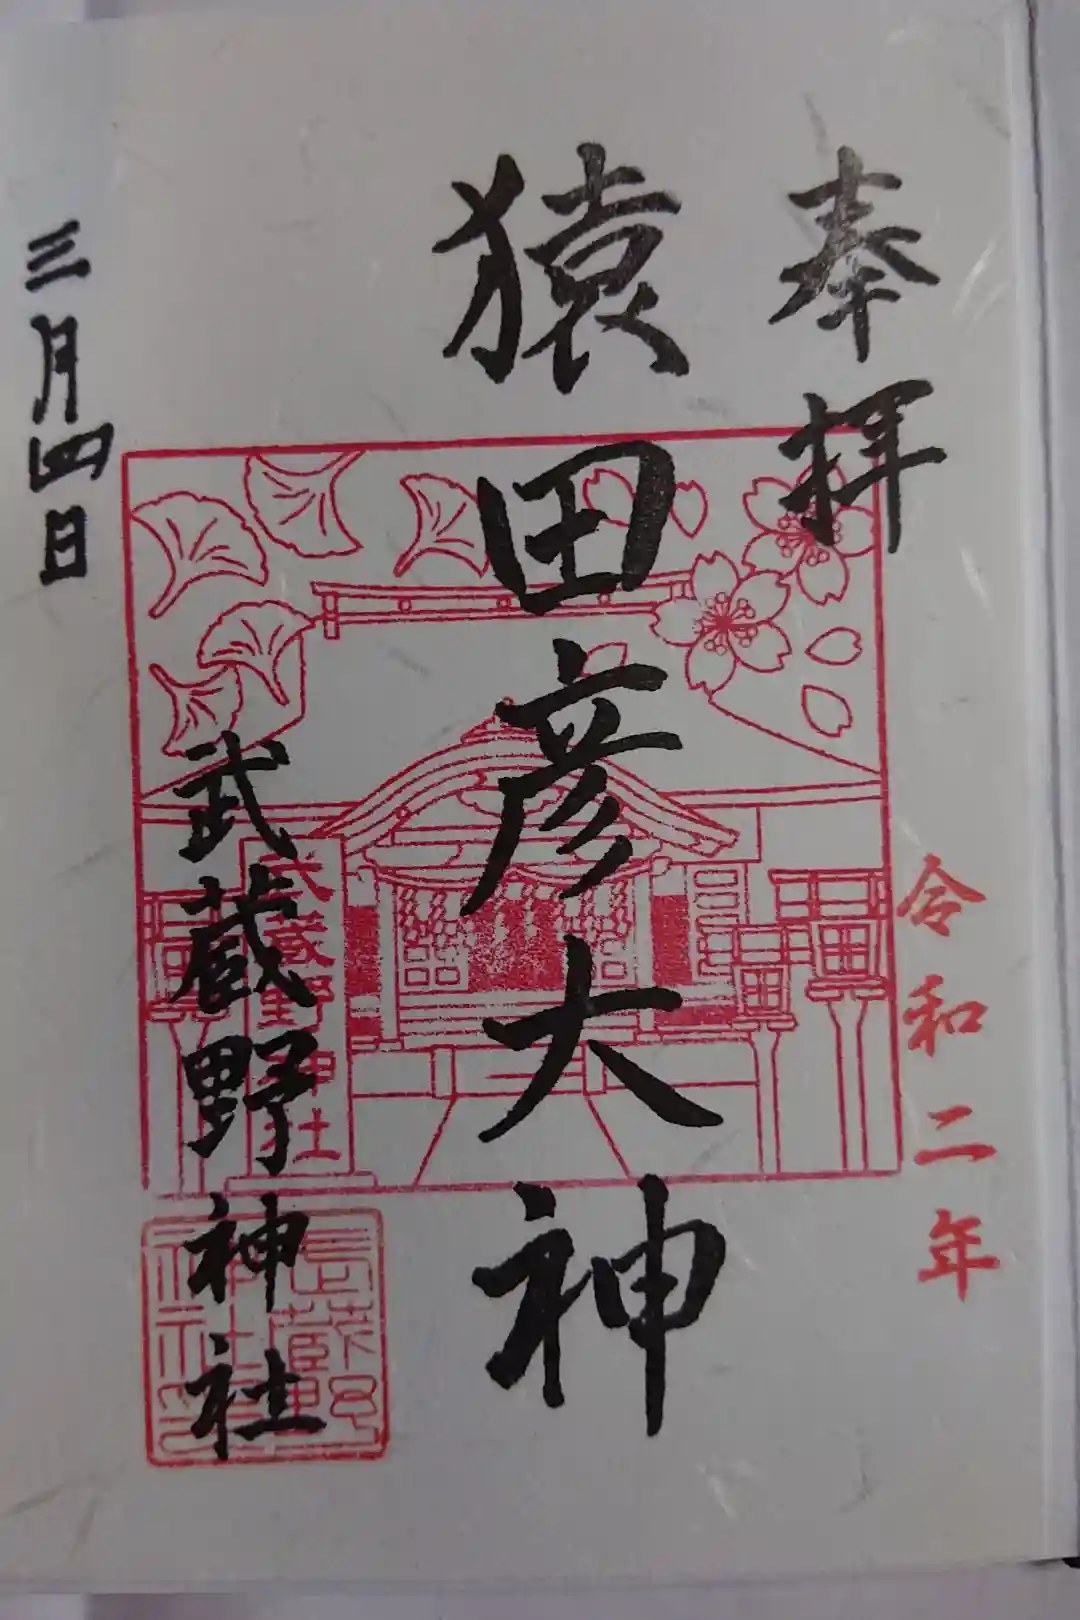 奉拝
令和二年
猿田彦大神
武蔵野神社
武蔵野神社
三月四日